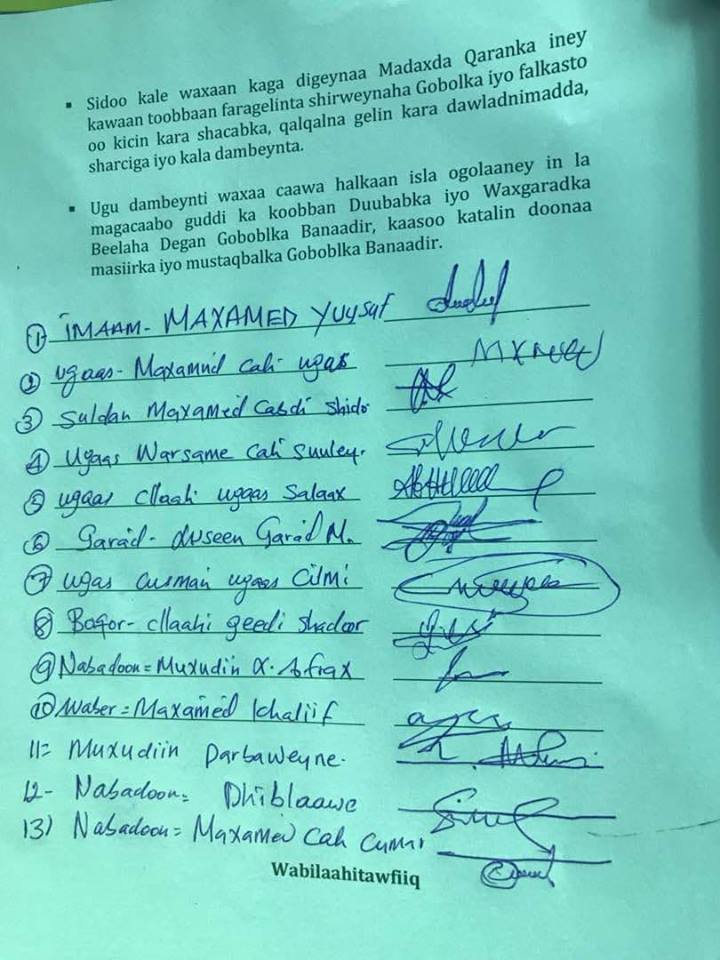 ▪ Sidoo kale waxaan kaga digeynaa Madaxda Qaranka iney
kawaan toobbaan faragelinta shirweynaha Gobolka iyo falkasto
oo kicin kara shacabka, qalqalna gelin kara dawladnimadda,
sharciga iyo kala dambeynta.
▪ Ugu dambeynti waxaa caawa halkaan isla ogolaaney in la
magacaabo guddi ka koobban Duubabka iyo Waxgaradka
Beelaha Degan Goboblka Banaadir, kaasoo katalin doonaa
masiirka iyo mustaqbalka Goboblka Banaadir.
1 IMAAM- MAXAMED Yuysuf
2 ugaas- Maxamud Cali ugas
3 Suldan Maxamed Cabdi Shido
4 Ugaas Warsame Cali Suuley.
5 ugaas Cllaahi ugaas Salaax
6 Garad- Xuseen Garad M.
7 ugas Cusman ugaas Cilmi
8 Boqor- Cllaahi geedi Shadoor
9 Nabadoon= Muxudin X. Afrax
10 Waber= Maxamed Khaliif
11= Muxudiin Darbaweyne.
12- Nabadoon= Dhiblaawe
13) Nabadoon= Maxamed Cali Cumar
Wabilaahitawfiiq